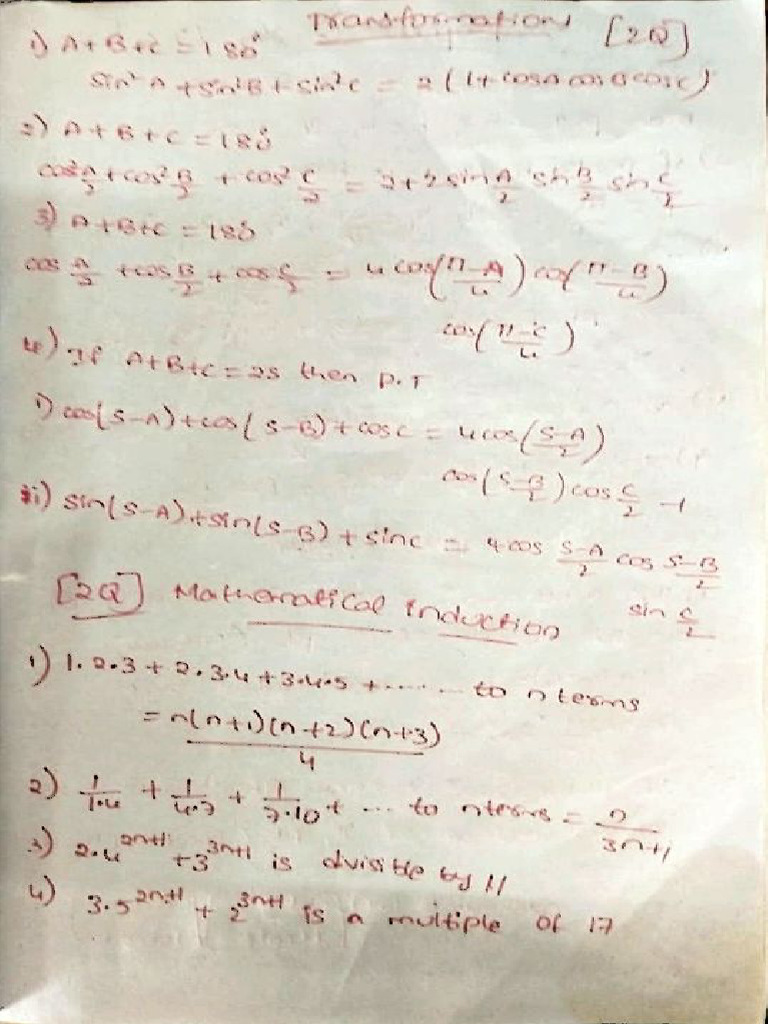 Transformations [2Q]
1) A+B+C = 180°
sin²A + sin²B + sin²C = 2(1+cosA cosB cosC)
2) A+B+C = 180°
cos² A/2 + cos² B/2 + cos² C/2 = 2+2 sin A/2 sin B/2 sin C/2
3) A+B+C = 180°
cos A/2 + cos B/2 + cos C/2 = 4 cos(π-A/4) cos(π-B/4)
cos(π-C/4)
4) If A+B+C = 2S then P.T
i) cos(S-A)+cos(S-B)+cosC = 4cos(S-A/2)
cos(S-B/2) cos C/2 -1
ii) sin(S-A)+sin(S-B)+sinC = 4cos S-A/2 cos S-B/2
sin C/2
[2Q] Mathematical induction
1) 1.2.3 + 2.3.4 + 3.4.5 + ...... to n terms
= n(n+1)(n+2)(n+3)/4
2) 1/1.4 + 1/4.7 + 1/7.10 + ... to n terms = n/3n+1
3) 2.4^2n+1 + 3^3n+1 is divisible by 11
4) 3.5^2n+1 + 2^3n+1 is a multiple of 17